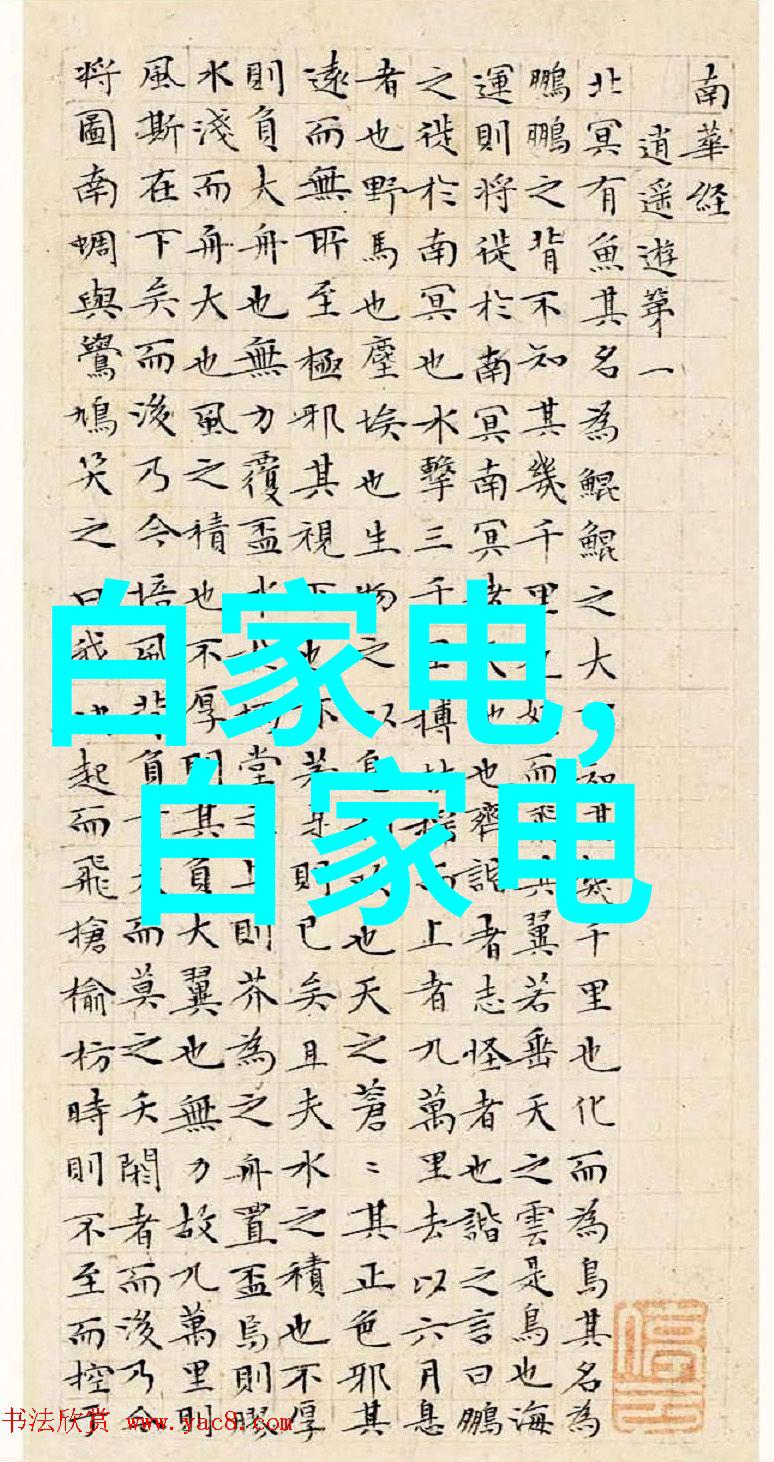 南華経
逍遥遊第一
北冥有魚其名為鯤鯤之大知其幾千里也化而為鳥其名為
鵬鵬之背不知其幾千里也而飛其翼若垂天之雲是鳥也海
運則将徙於南冥南冥者也齊諧者志怪者也諧之言曰鵬
之徙於南冥也水擊三千里搏而上者九萬里去以六月息
者也野馬也塵埃也生物之以息也天之蒼〻其正色邪其
遠而無所至極邪其視下也亦若是則已矣且夫水之積也不厚
則負大舟也無力覆盃水堂之上則芥為之舟置盃焉則膠
水淺而舟大也風之積也不厚則其負大翼也無力故九萬里則
風斯在下矣而後乃今培風背負天而莫之夭閼者而後乃今
将圖南蜩與鷽鳩笑之曰我起而飛搶榆枋時則不至而控
自家电,
自家电
书法欣赏 www.yac8.com